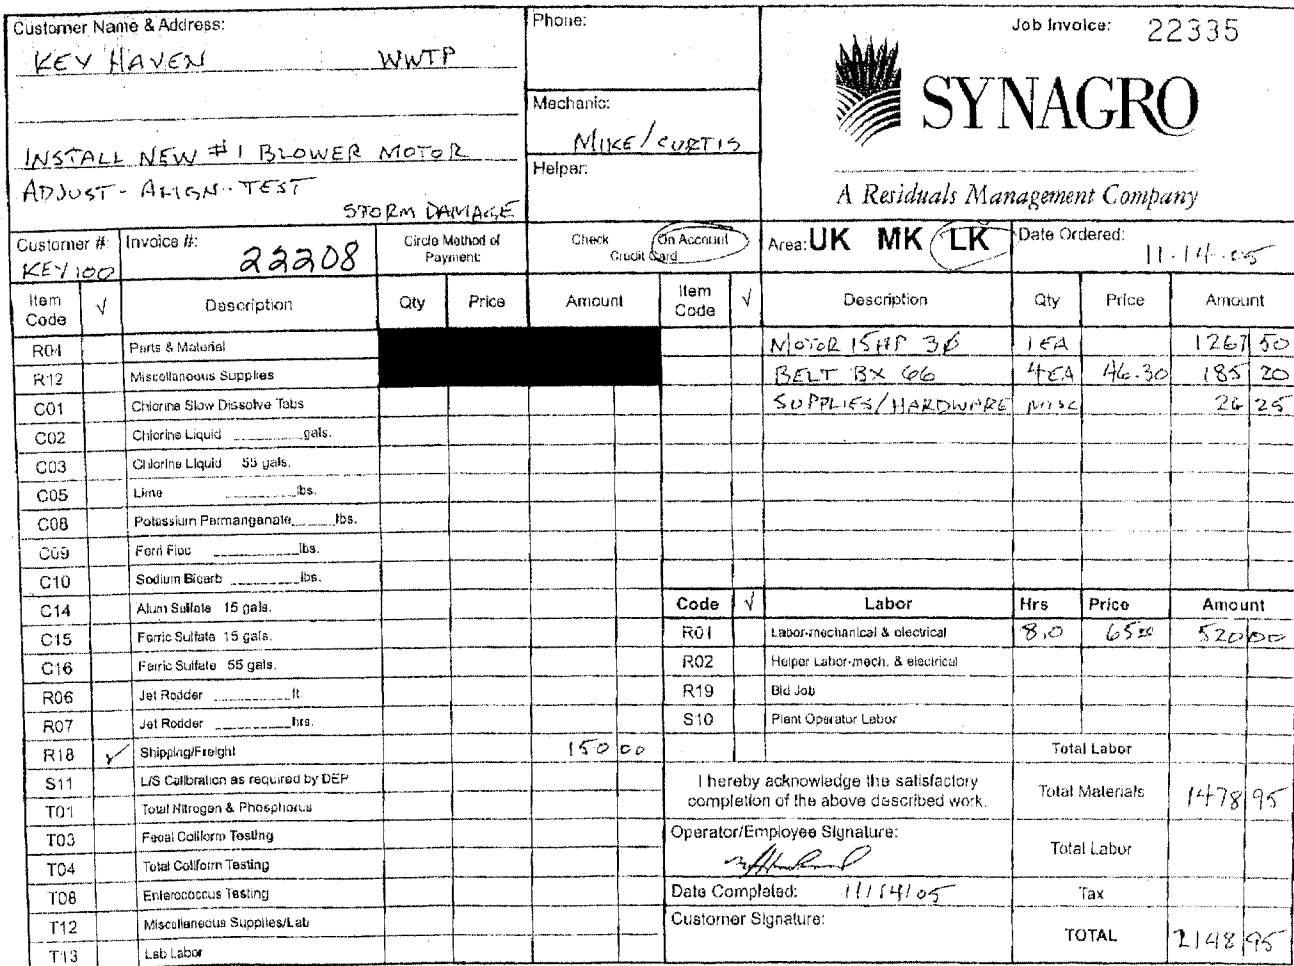 Customer Name & Address:
KEY HAVEN WWTP
INSTALL NEW #1 BLOWER MOTOR
ADJUST - ALIGN - TEST
STORM DAMAGE
Phone:
Mechanic:
MIKE/CURTIS
Helper:
Job Invoice: 22335
SYNAGRO
A Residuals Management Company
Customer #: KEY100
Invoice #: 22208
Circle Method of Payment:
Check On Account
Credit Card
Area: UK MK LK
Date Ordered: 11-14-05
Item Code √ Description Qty Price Amount
R04 Parts & Material
R12 Miscellaneous Supplies
C01 Chlorine Slow Dissolve Tabs
C02 Chlorine Liquid ______gals.
C03 Chlorine Liquid 55 gals.
C05 Lime ______lbs.
C08 Potassium Permanganate______lbs.
C09 Ferri Floc ______lbs.
C10 Sodium Bicarb ______lbs.
C14 Alum Sulfate 15 gals.
C15 Ferric Sulfate 15 gals.
C16 Ferric Sulfate 55 gals.
R06 Jet Rodder ______ft
R07 Jet Rodder ______hrs.
R18 ✓ Shipping/Freight 150 00
S11 L/S Calibration as required by DEP
T01 Total Nitrogen & Phosphorus
T03 Fecal Coliform Testing
T04 Total Coliform Testing
T08 Enterococcus Testing
T12 Miscellaneous Supplies/Lab
T13 Lab Labor
Item Code √ Description Qty Price Amount
MOTOR 15HP 3Ø 1EA 1267 50
BELT BX 66 4EA 46.30 185 20
SUPPLIES/HARDWARE MISC 26 25
Code √ Labor Hrs Price Amount
R01 Labor-mechanical & electrical 8.0 65 00 520 00
R02 Helper Labor-mech. & electrical
R19 Bid Job
S10 Plant Operator Labor
Total Labor
I hereby acknowledge the satisfactory
completion of the above described work.
Total Materials 1478 95
Operator/Employee Signature:
Total Labor
Date Completed: 11/14/05
Tax
Customer Signature:
TOTAL 2148 95